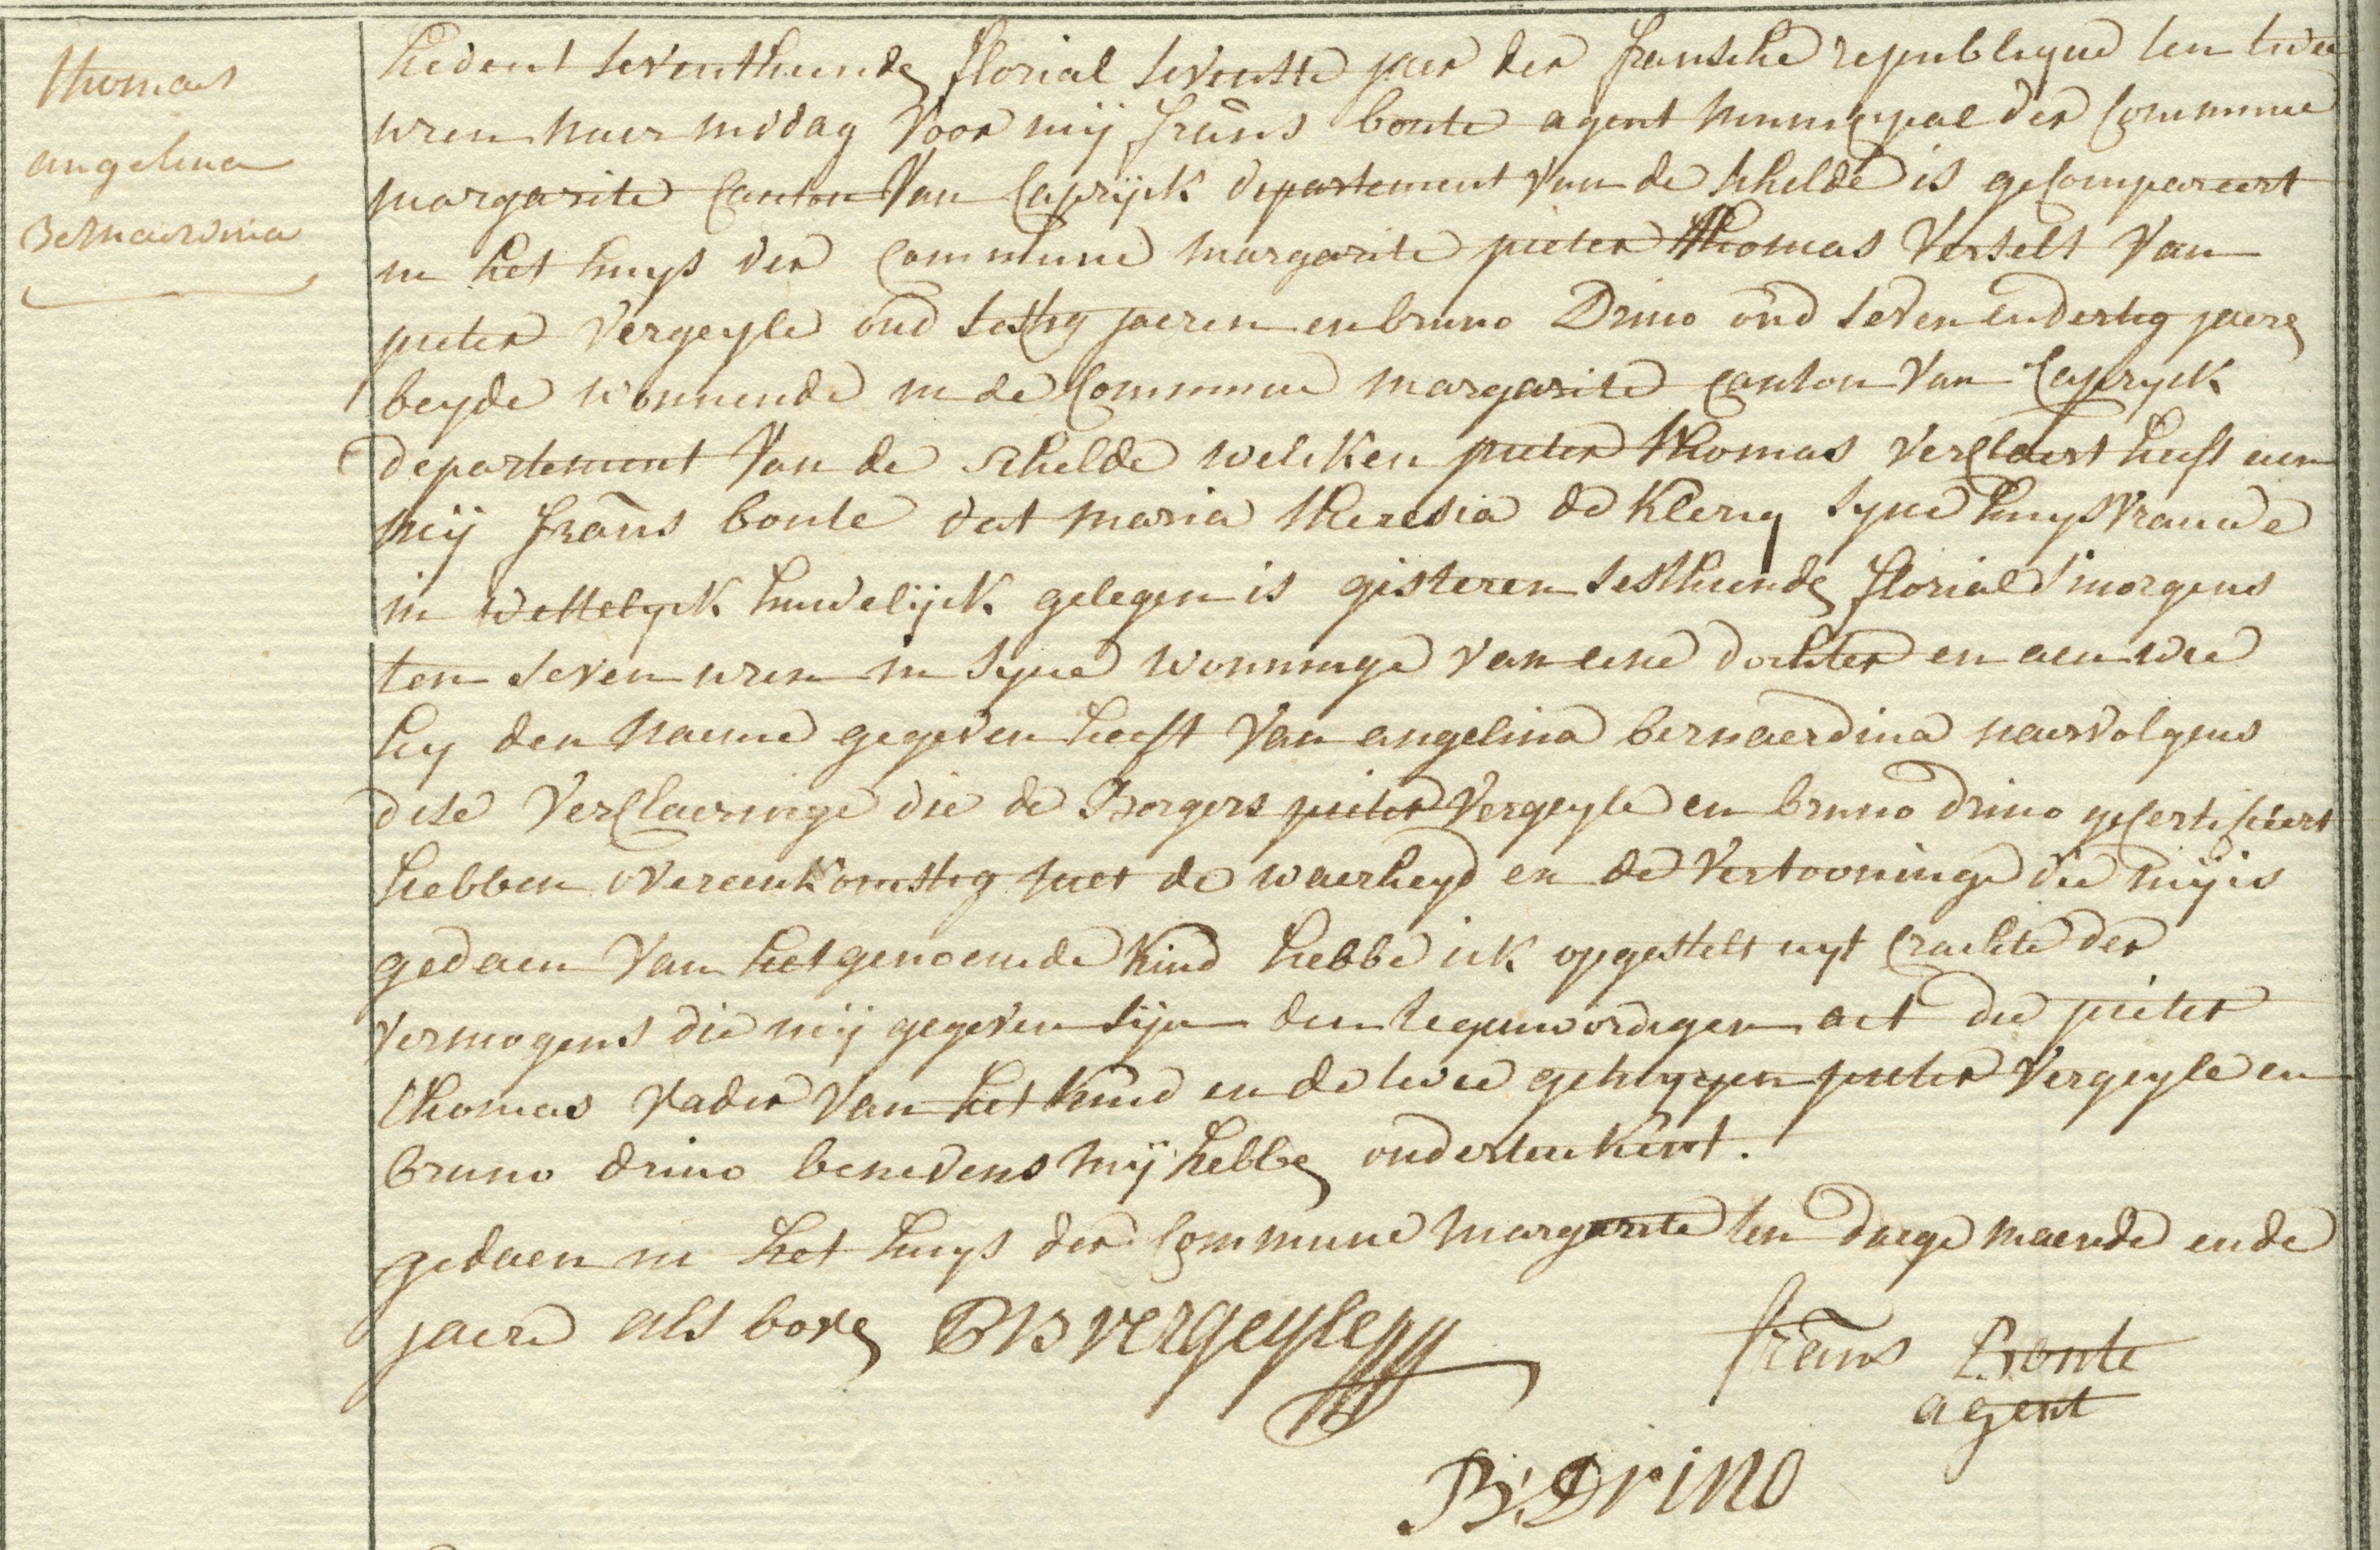 thomas
angelina
Bernaerdina
hedent seventhunde florial sevenste jaer der fransche republique ten twee
uren naer midag voor mij frans bonte agent municipael der Commune
margarite Canton van Caprijck departement van de schelde is gecompareert
in het huys der Commune margarite pieter thomas verselt van
pieter vergeyle oud sestig jaeren en bruno Drino oud seven en dertig jaere
beyde wonnende in de Commune margarite canton van Capryck
departement van de schelde welcken pieter thomas verclaert heeft aen
mij frans bonte dat maria theresia de Klercq syne huysvrauwe
in wettelyck huwelijck gelegen is gisteren sesthunde florial s'morgens
ten seven uren in syne wonninge van eene dochter en aen wie
hy den naeme gegeven heeft van angelina bernaerdina naervolgens
dese verclaeringe die de Borgers pieter vergeyle en bruno drino gecertifieert
hebben overeenkomstig met de waerheyd en de vertooninge die mij is
gedaen van het genoemde kind hebbe ick opgestelt uyt crachte der
vermogens die mij gegeven sijn den tegenwordigen act die pieter
thomas vader van het kind en de twee getuygen pieter vergeyle en
bruno drino benevens mij hebbe onderteekent.
gedaen in het huys der Commune margarite ten daege maende ende
jaere als bove PB vergeyle
frans Bonte
agent
B: Drino